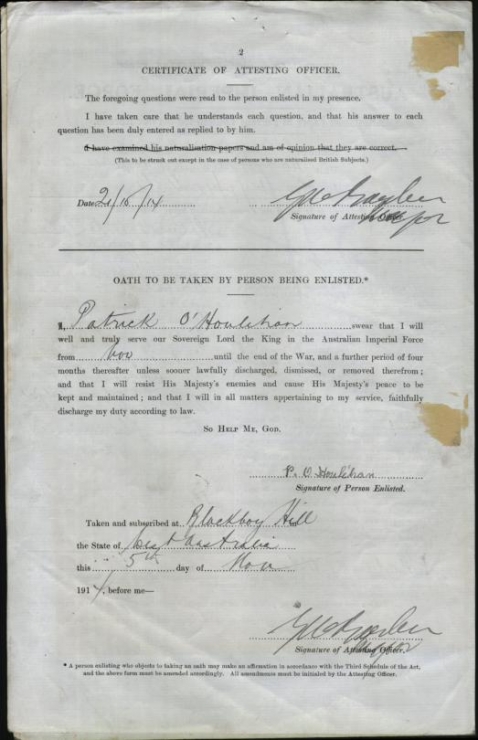 2
CERTIFICATE OF ATTESTING OFFICER.
The foregoing questions were read to the person enlisted in my presence.
I have taken care that he understands each question, and that his answer to each
question has been duly entered as replied to by him.
I have examined his naturalisation papers and am of opinion that they are correct.
(This to be struck out except in the case of persons who are naturalized British Subjects.)
Date 21/10/14
Signature of Attesting Officer.
Major
OATH TO BE TAKEN BY PERSON BEING ENLISTED.*
I, Patrick O'Houlihan swear that I will
well and truly serve our Sovereign Lord the King in the Australian Imperial Force
from until the end of the War, and a further period of four
months thereafter unless sooner lawfully discharged, dismissed, or removed therefrom;
and that I will resist His Majesty's enemies and cause His Majesty's peace to be
kept and maintained; and that I will in all matters appertaining to my service, faithfully
discharge my duty according to law.
SO HELP ME, GOD.
P. O Houlihan
Signature of Person Enlisted.
Taken and subscribed at Blackboy Hill
the State of West Australia
this 5th day of Nov
1914, before me—
Major
Signature of Attesting Officer.
* A person enlisting who objects to taking an oath may make an affirmation in accordance with the Third Schedule of the Act,
and the above form must be amended accordingly. All amendments must be initialed by the Attesting Officer.